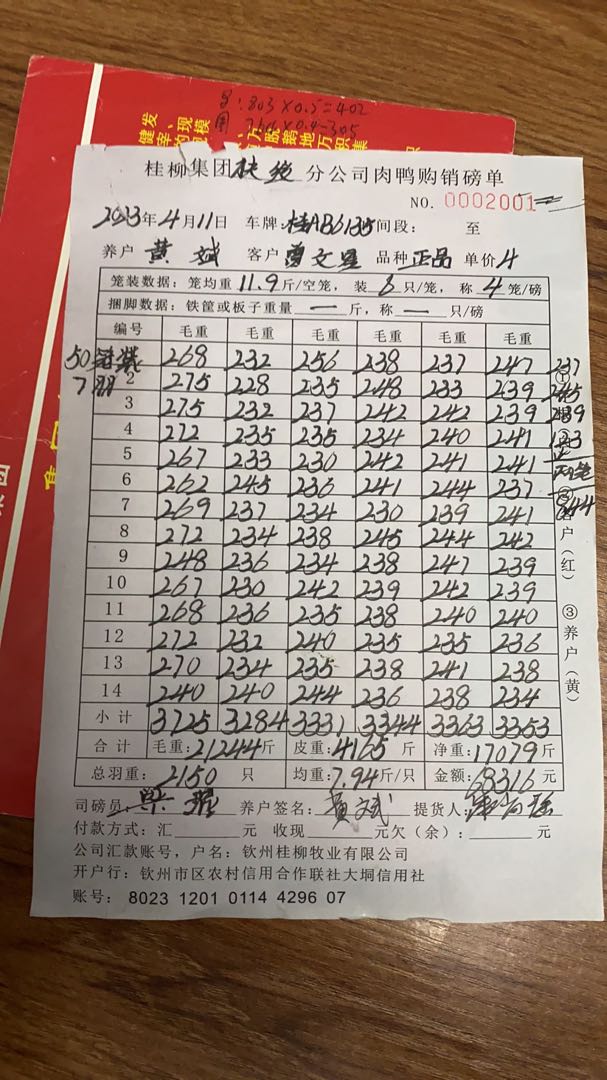 8:803×0.5=402
桂柳集团 分公司肉鸭购销磅单
NO. 0002001
2023年4月11日 车牌:桂AB6135 间段: 至
养户 黄斌 客户 曾文星 品种 正品 单价 4
笼装数据:笼均重 11.9 斤/空笼,装 8 只/笼,称 4 笼/磅
捆脚数据:铁筐或板子重量 一 斤,称 一 只/磅
编号 毛重 毛重 毛重 毛重 毛重 毛重
50 268 232 256 238 237 247 237
7 2 275 228 235 248 233 239 245
3 275 232 237 242 242 239 239
4 272 235 235 234 240 241 123
5 267 233 230 242 241 241
6 262 245 236 241 244 237
7 269 237 234 230 239 241 844
8 272 234 238 245 244 242
9 248 236 234 238 247 239
10 267 230 242 239 242 239
11 268 236 235 238 240 240
12 272 232 240 235 235 236
13 270 234 235 238 241 238
14 240 240 244 236 238 234
小计 3725 3284 3331 3344 3363 3353
合计 毛重:21244斤 皮重:4165 斤 净重:17079斤
总羽重: 2150 只 均重:7.94斤/只 金额:68316元
户(红) ③养户(黄)
司磅员: 养户签名: 黄斌 提货人:
付款方式:汇 元 收现 元欠(余): 元
公司汇款账号,户名:钦州桂柳牧业有限公司
开户行:钦州市区农村信用合作联社大垌信用社
账号: 8023 1201 0114 4296 07